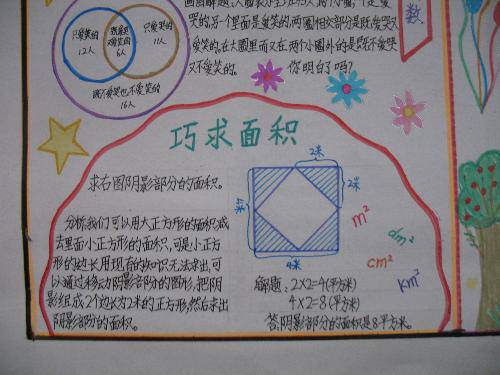 哭的,另一个里面是爱笑的,两圈相交部分是既爱哭又
爱笑的,在大圈里而又在两个小圈外的是既不爱哭
又不爱笑的。 你明白了吗?
数
只爱哭的
12人
6人
只爱笑的
11人
既不爱哭也不爱笑的
16人
巧求面积
求右图阴影部分的面积。
分析:我们可以用大正方形的面积减
去里面小正方形的面积,可是小正方
形的边长用现有的知识无法求出,可
以通过移动阴影部分的图形,把阴
影组成2个边长为2米的正方形,然后求出
阴影部分的面积。
2米
2米
4米
4米
m²
dm²
cm²
km²
解题:2×2=4(平方米)
4×2=8(平方米)
答:阴影部分的面积是8平方米。